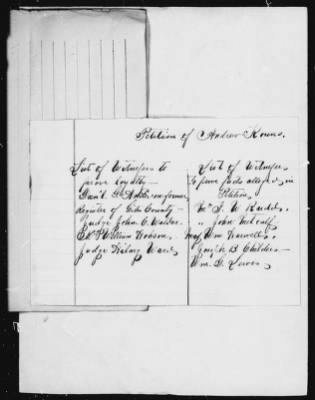 Petition of Andrew Kouns.
List of Witnesses to
prove loyalty—
Dan'l former
Register of Giles County—
Judge John C.
Ex William
Judge Ward
List of Witnesses
to prove facts alleged in
Petition.
Mr J. W. Rudd.
" John Metcalf
Maj Wm Harwell
Joseph B Childers—
Wm. G. Lewis